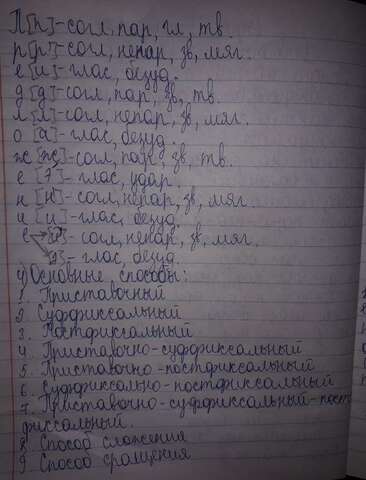 П[п]-согл, пар, гл, тв.
р[р']-согл, непар, зв, мяг.
е[и]-глас, безуд.
д[д]-согл, пар, зв, тв.
л[л]-согл, непар, зв, мяг.
о[а]-глас, безуд.
ж[ж]-согл, пар, зв, тв.
е[э]-глас, удар.
н[н']-согл, непар, зв, мяг.
и[и]-глас, безуд.
е→[й']-согл, непар, зв, мяг.
[э]-глас, безуд.
4) Основные способы:
1. Приставочный
2. Суффиксальный
3. Постфиксальный
4. Приставочно-суффиксальный
5. Приставочно-постфиксальный
6. Суффиксально-постфиксальный
7. Приставочно-суффиксальный-пост
фиксальный.
8. Способ сложения
9. Способ сращения